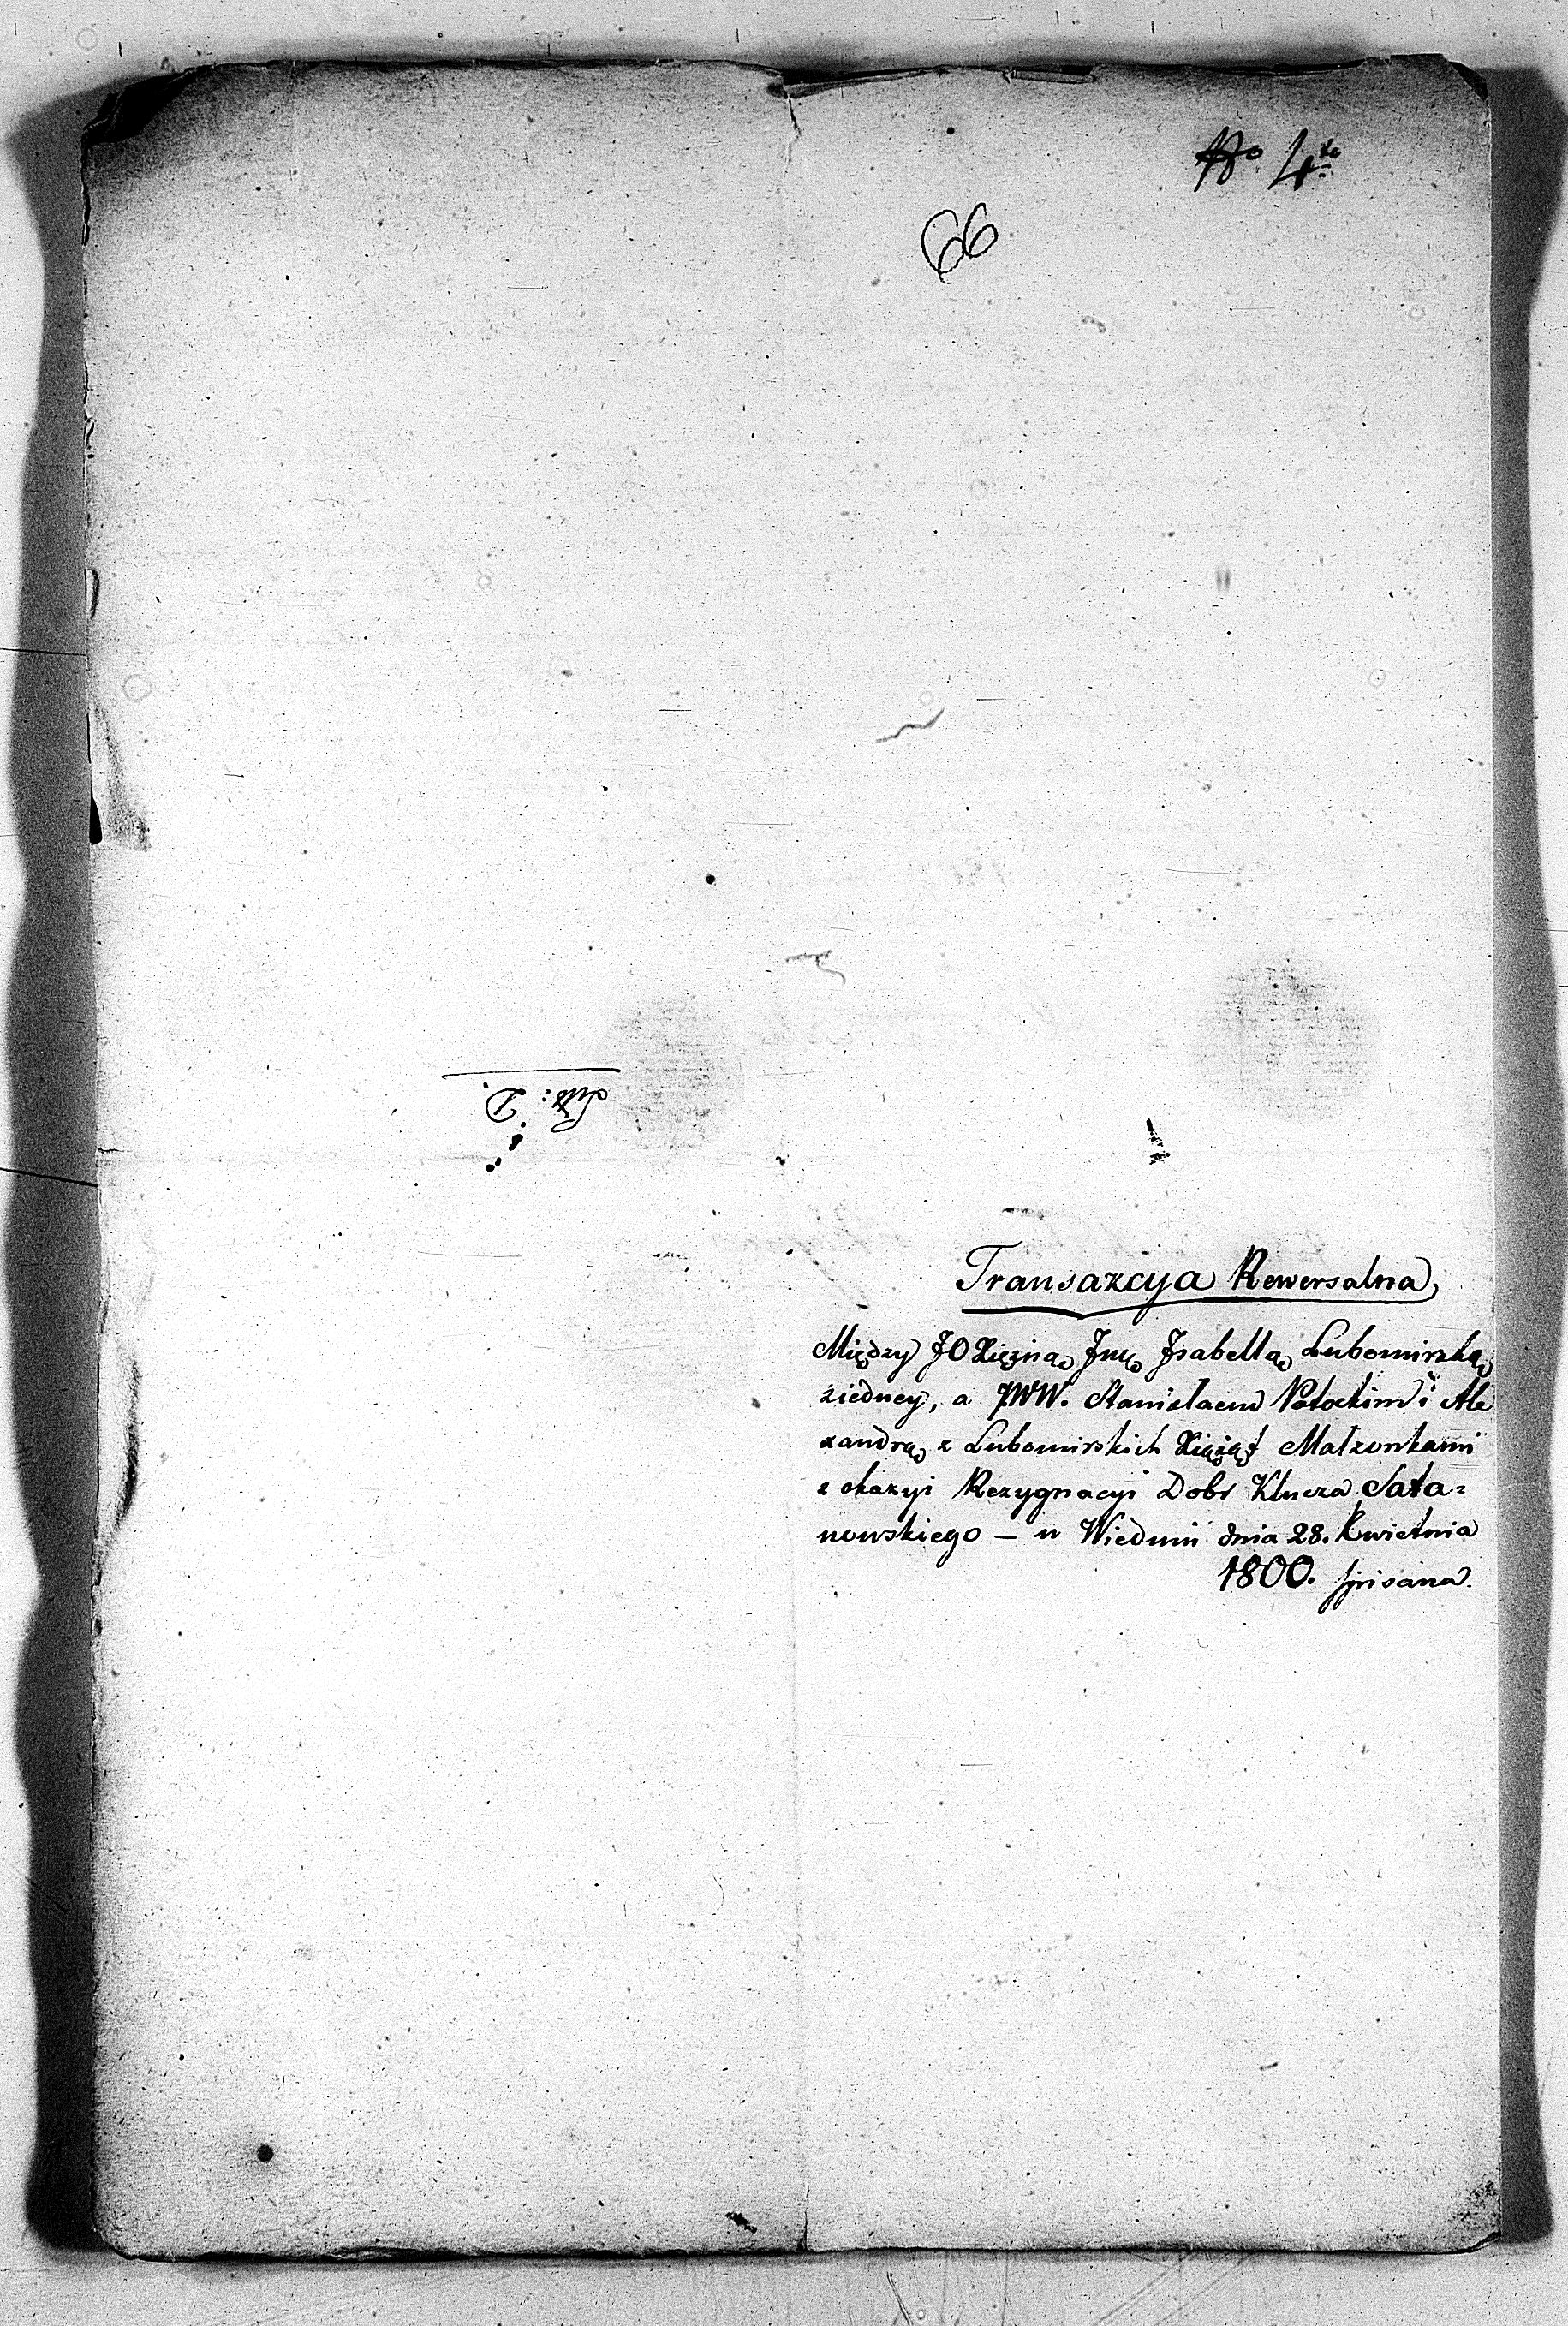 No 4to
66
Litt: D.
Transakcya Rewersalna,
Między JO Xiężną Jmę Isabellą Lubomirską
ziedney, a JWW. Stanisłaem Potockim i Ale
xandrą z Lubomirskich Xiążąt Małżonkami
z okazyi Rezygnacyi Dobr Klucza Sata=
nowskiego – w Wiedniu dnia 28. Kwietnia
1800. spisana.